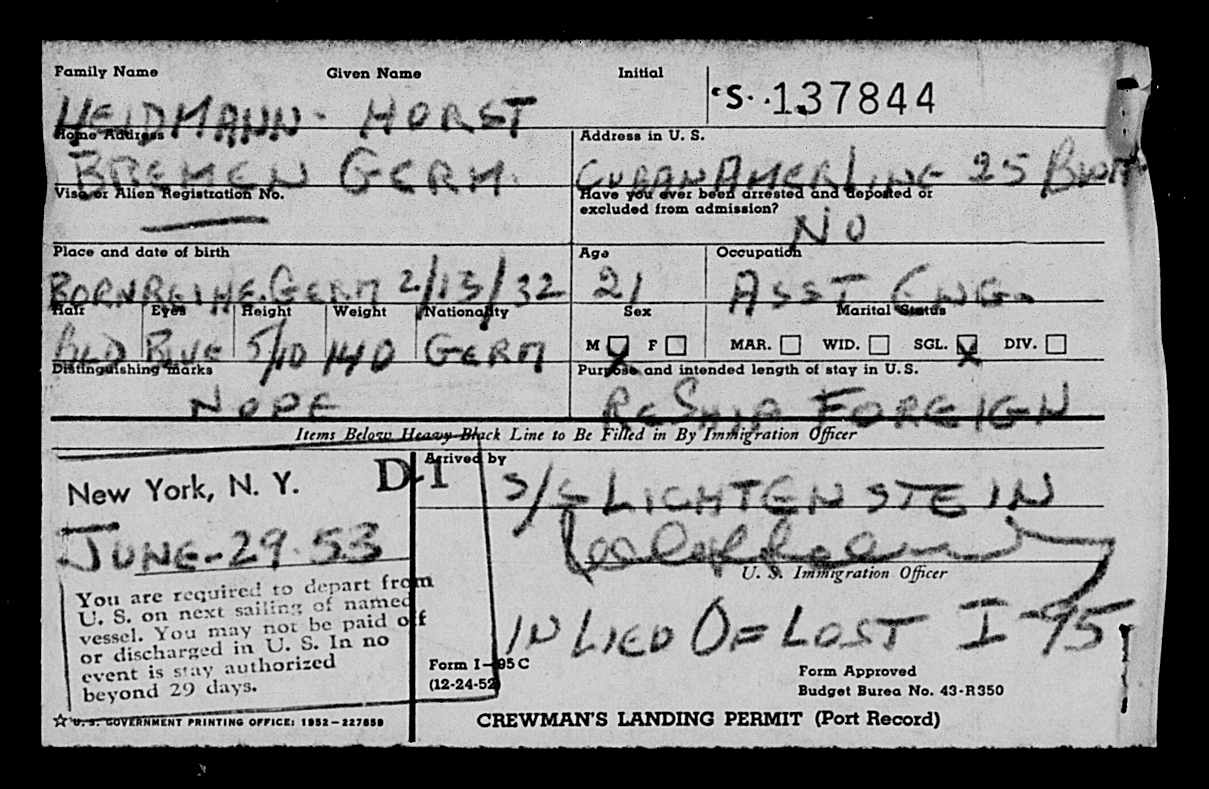 Family Name Given Name Initial
HEIDMANN - HORST S. 137844
Home Address Address in U. S.
BREMEN GERM. CUBAN AMER LINE 25 BWAY
Visa or Alien Registration No. Have you ever been arrested and deported or
excluded from admission?
— NO
Place and date of birth Age Occupation
BORN REIHE. GERM 2/13/32 21 ASST ENG.
Hair Eyes Height Weight Nationality Sex Marital Status
BLD BLUE 5/10 140 GERM M X F MAR. WID. SGL. X DIV.
Distinguishing marks Purpose and intended length of stay in U.S.
NONE RESHIP FOREIGN
Items Below Heavy Black Line to Be Filled in By Immigration Officer
New York, N. Y. D-1 Arrived by
S/S LICHTENSTEIN
JUNE-29-53
U. S. Immigration Officer
You are required to depart from
U. S. on next sailing of named
vessel. You may not be paid off
or discharged in U. S. In no
event is stay authorized
beyond 29 days.
IN LIED OF LOST I-95
Form I-95 C
(12-24-52)
Form Approved
Budget Burea No. 43-R350
☆ U. S. GOVERNMENT PRINTING OFFICE: 1952-227859
CREWMAN'S LANDING PERMIT (Port Record)